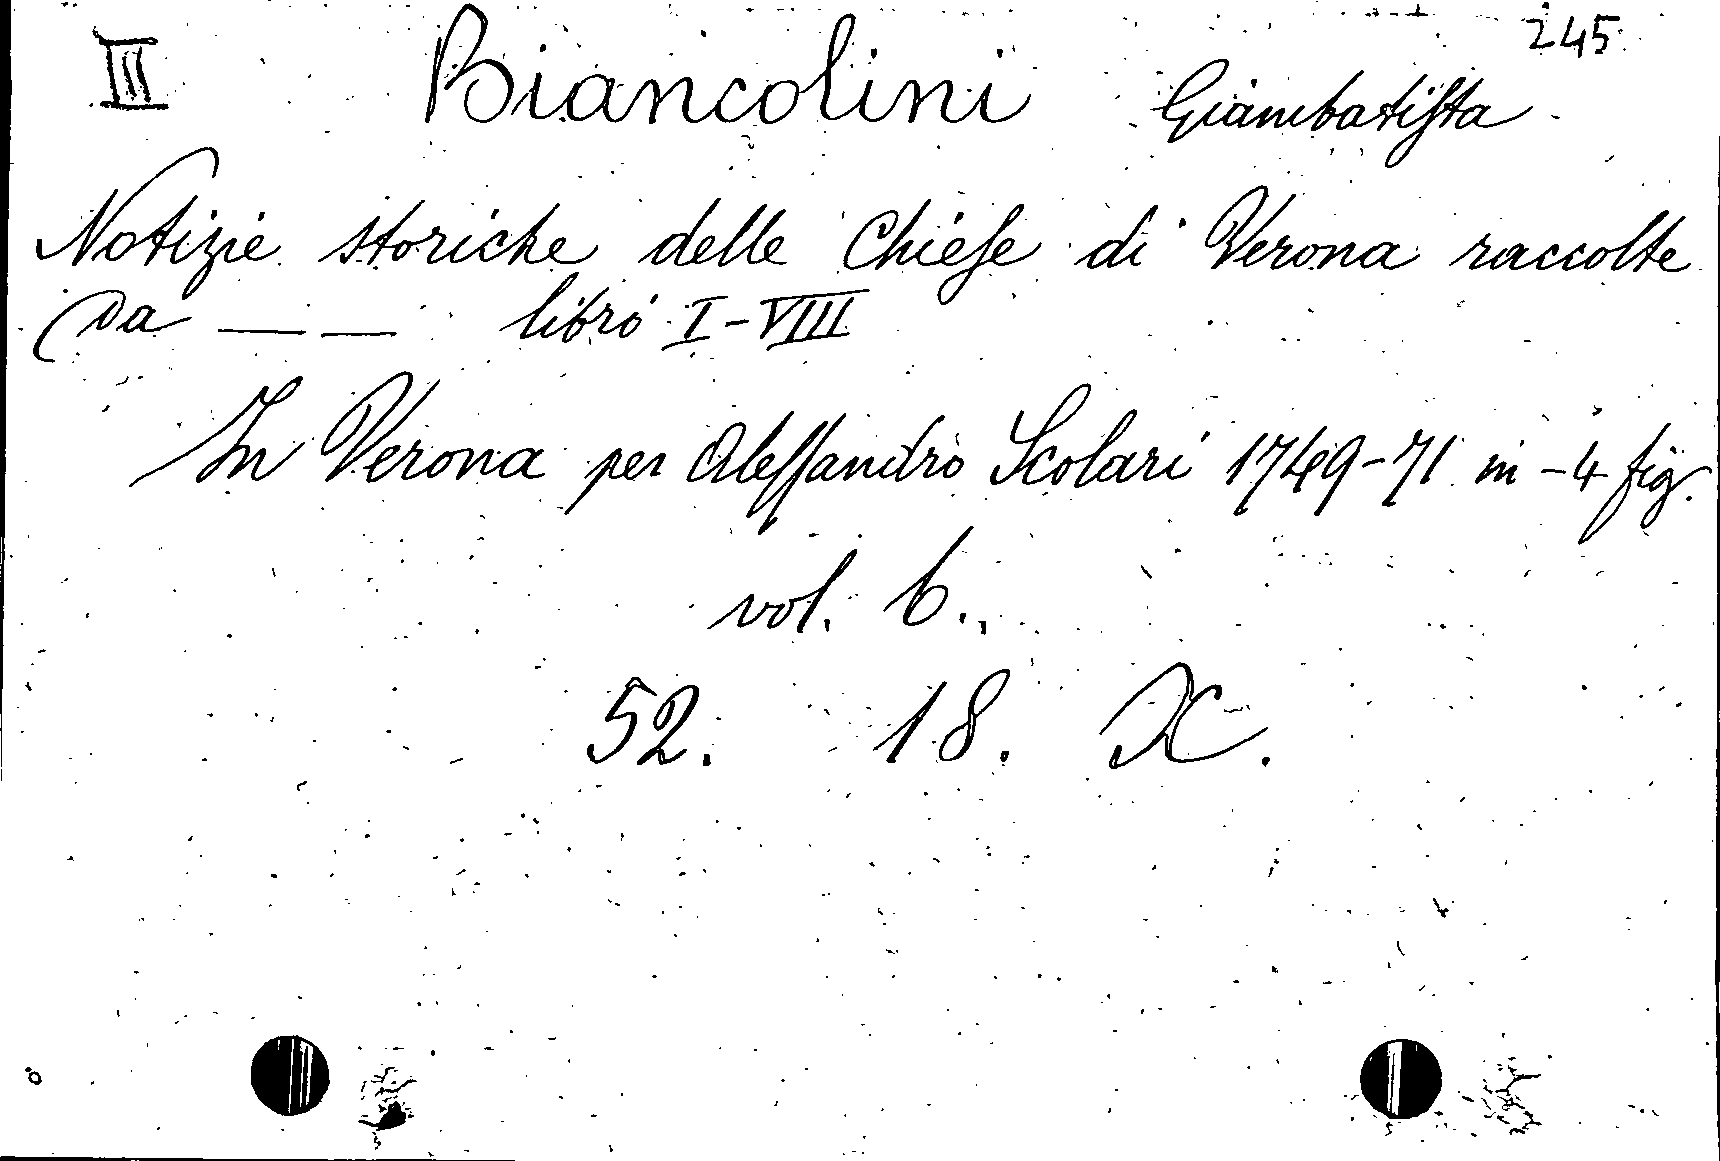 III Biancolini Giambatista 245
Notizie storiche delle Chiese di Verona raccolte
da — — libri I-VIII
In Verona per Alessandro Scolari 1749-71 in-4 fig.
vol. 6.
52. 18. X.